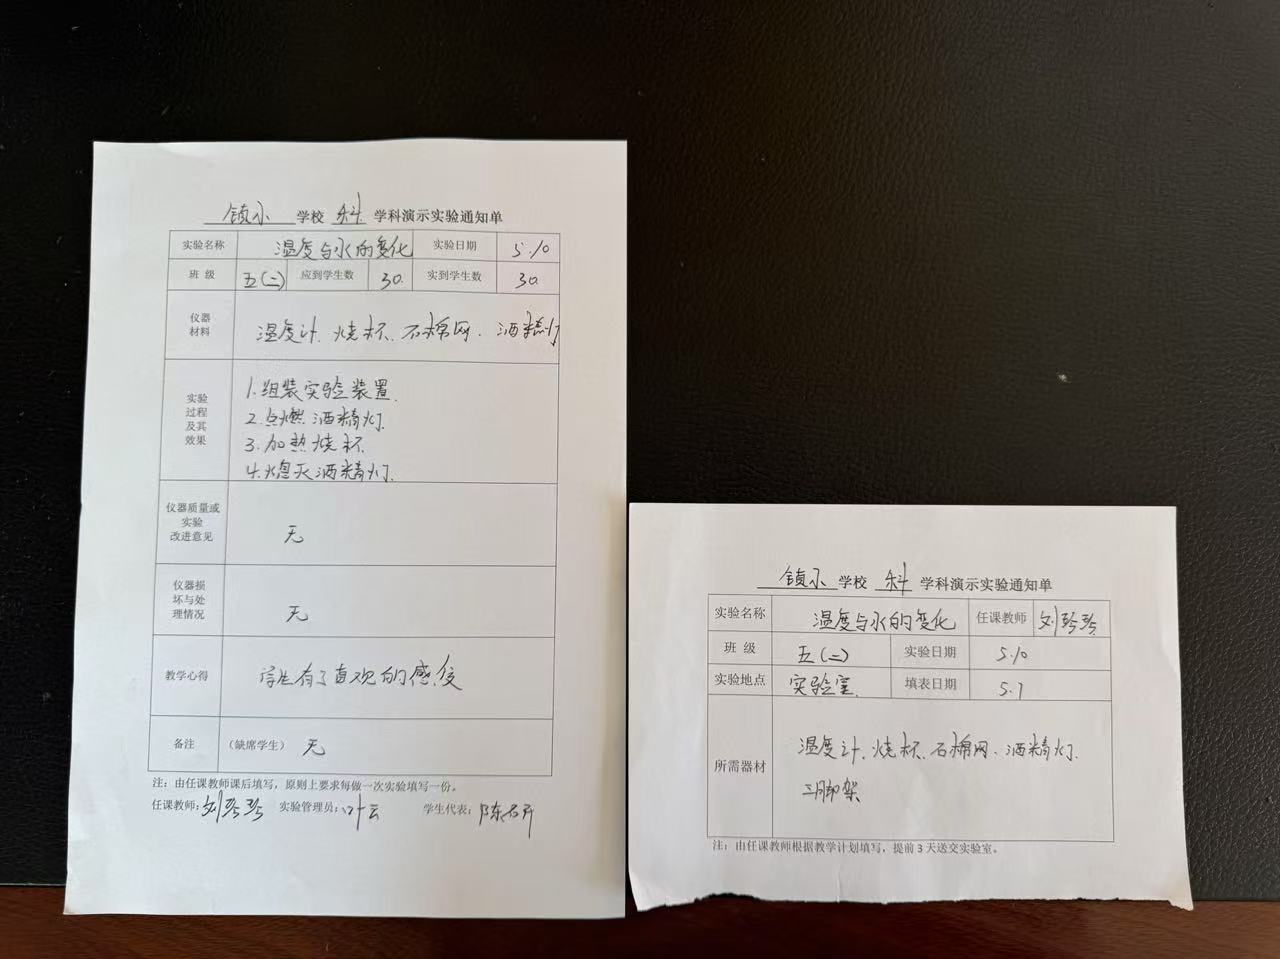 镇小 学校 科 学科演示实验通知单
实验名称 温度与水的变化 实验日期 5.10
班 级 五(二) 应到学生数 30 实到学生数 30
仪器
材料
温度计、烧杯、石棉网、酒精灯
实验
过程
及其
效果
1.组装实验装置
2.点燃酒精灯
3.加热烧杯
4.熄灭酒精灯
仪器质量或
实验
改进意见
无
仪器损
坏与处
理情况
无
教学心得 学生有了直观的感受
备注 （缺席学生） 无
注：由任课教师课后填写，原则上要求每做一次实验填写一份。
任课教师: 刘珍珍 实验管理员: 叶云 学生代表:
镇小 学校 科 学科演示实验通知单
实验名称 温度与水的变化 任课教师 刘珍珍
班 级 五(二) 实验日期 5.10
实验地点 实验室 填表日期 5.7
所需器材
温度计、烧杯、石棉网、酒精灯
三脚架
注：由任课教师根据教学计划填写，提前3天送交实验室。